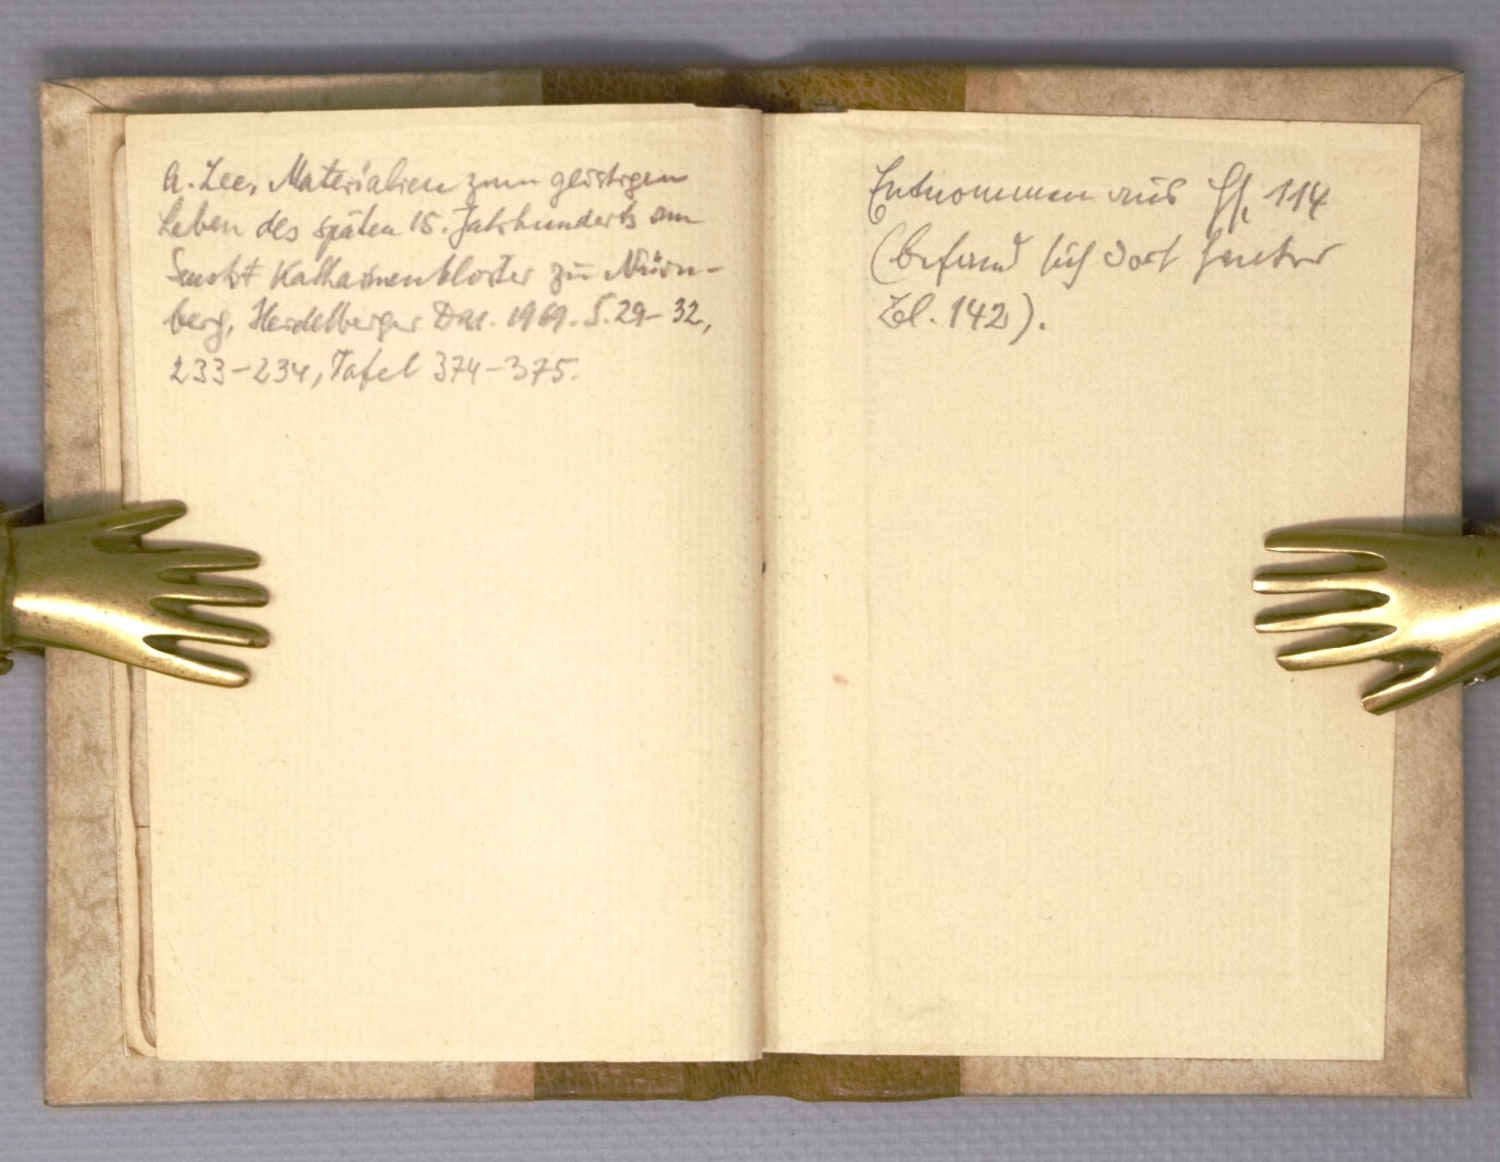 A. Lee, Materialien zum geistigen
Leben des späten 15. Jahrhunderts im
Sankt Katharinenkloster zu Nürn-
berg, Heidelberger Diss. 1969. S. 29-32,
233-234, Tafel 374-375.
Entnommen aus Hs. 114
(befand sich dort hinter
Bl. 142).